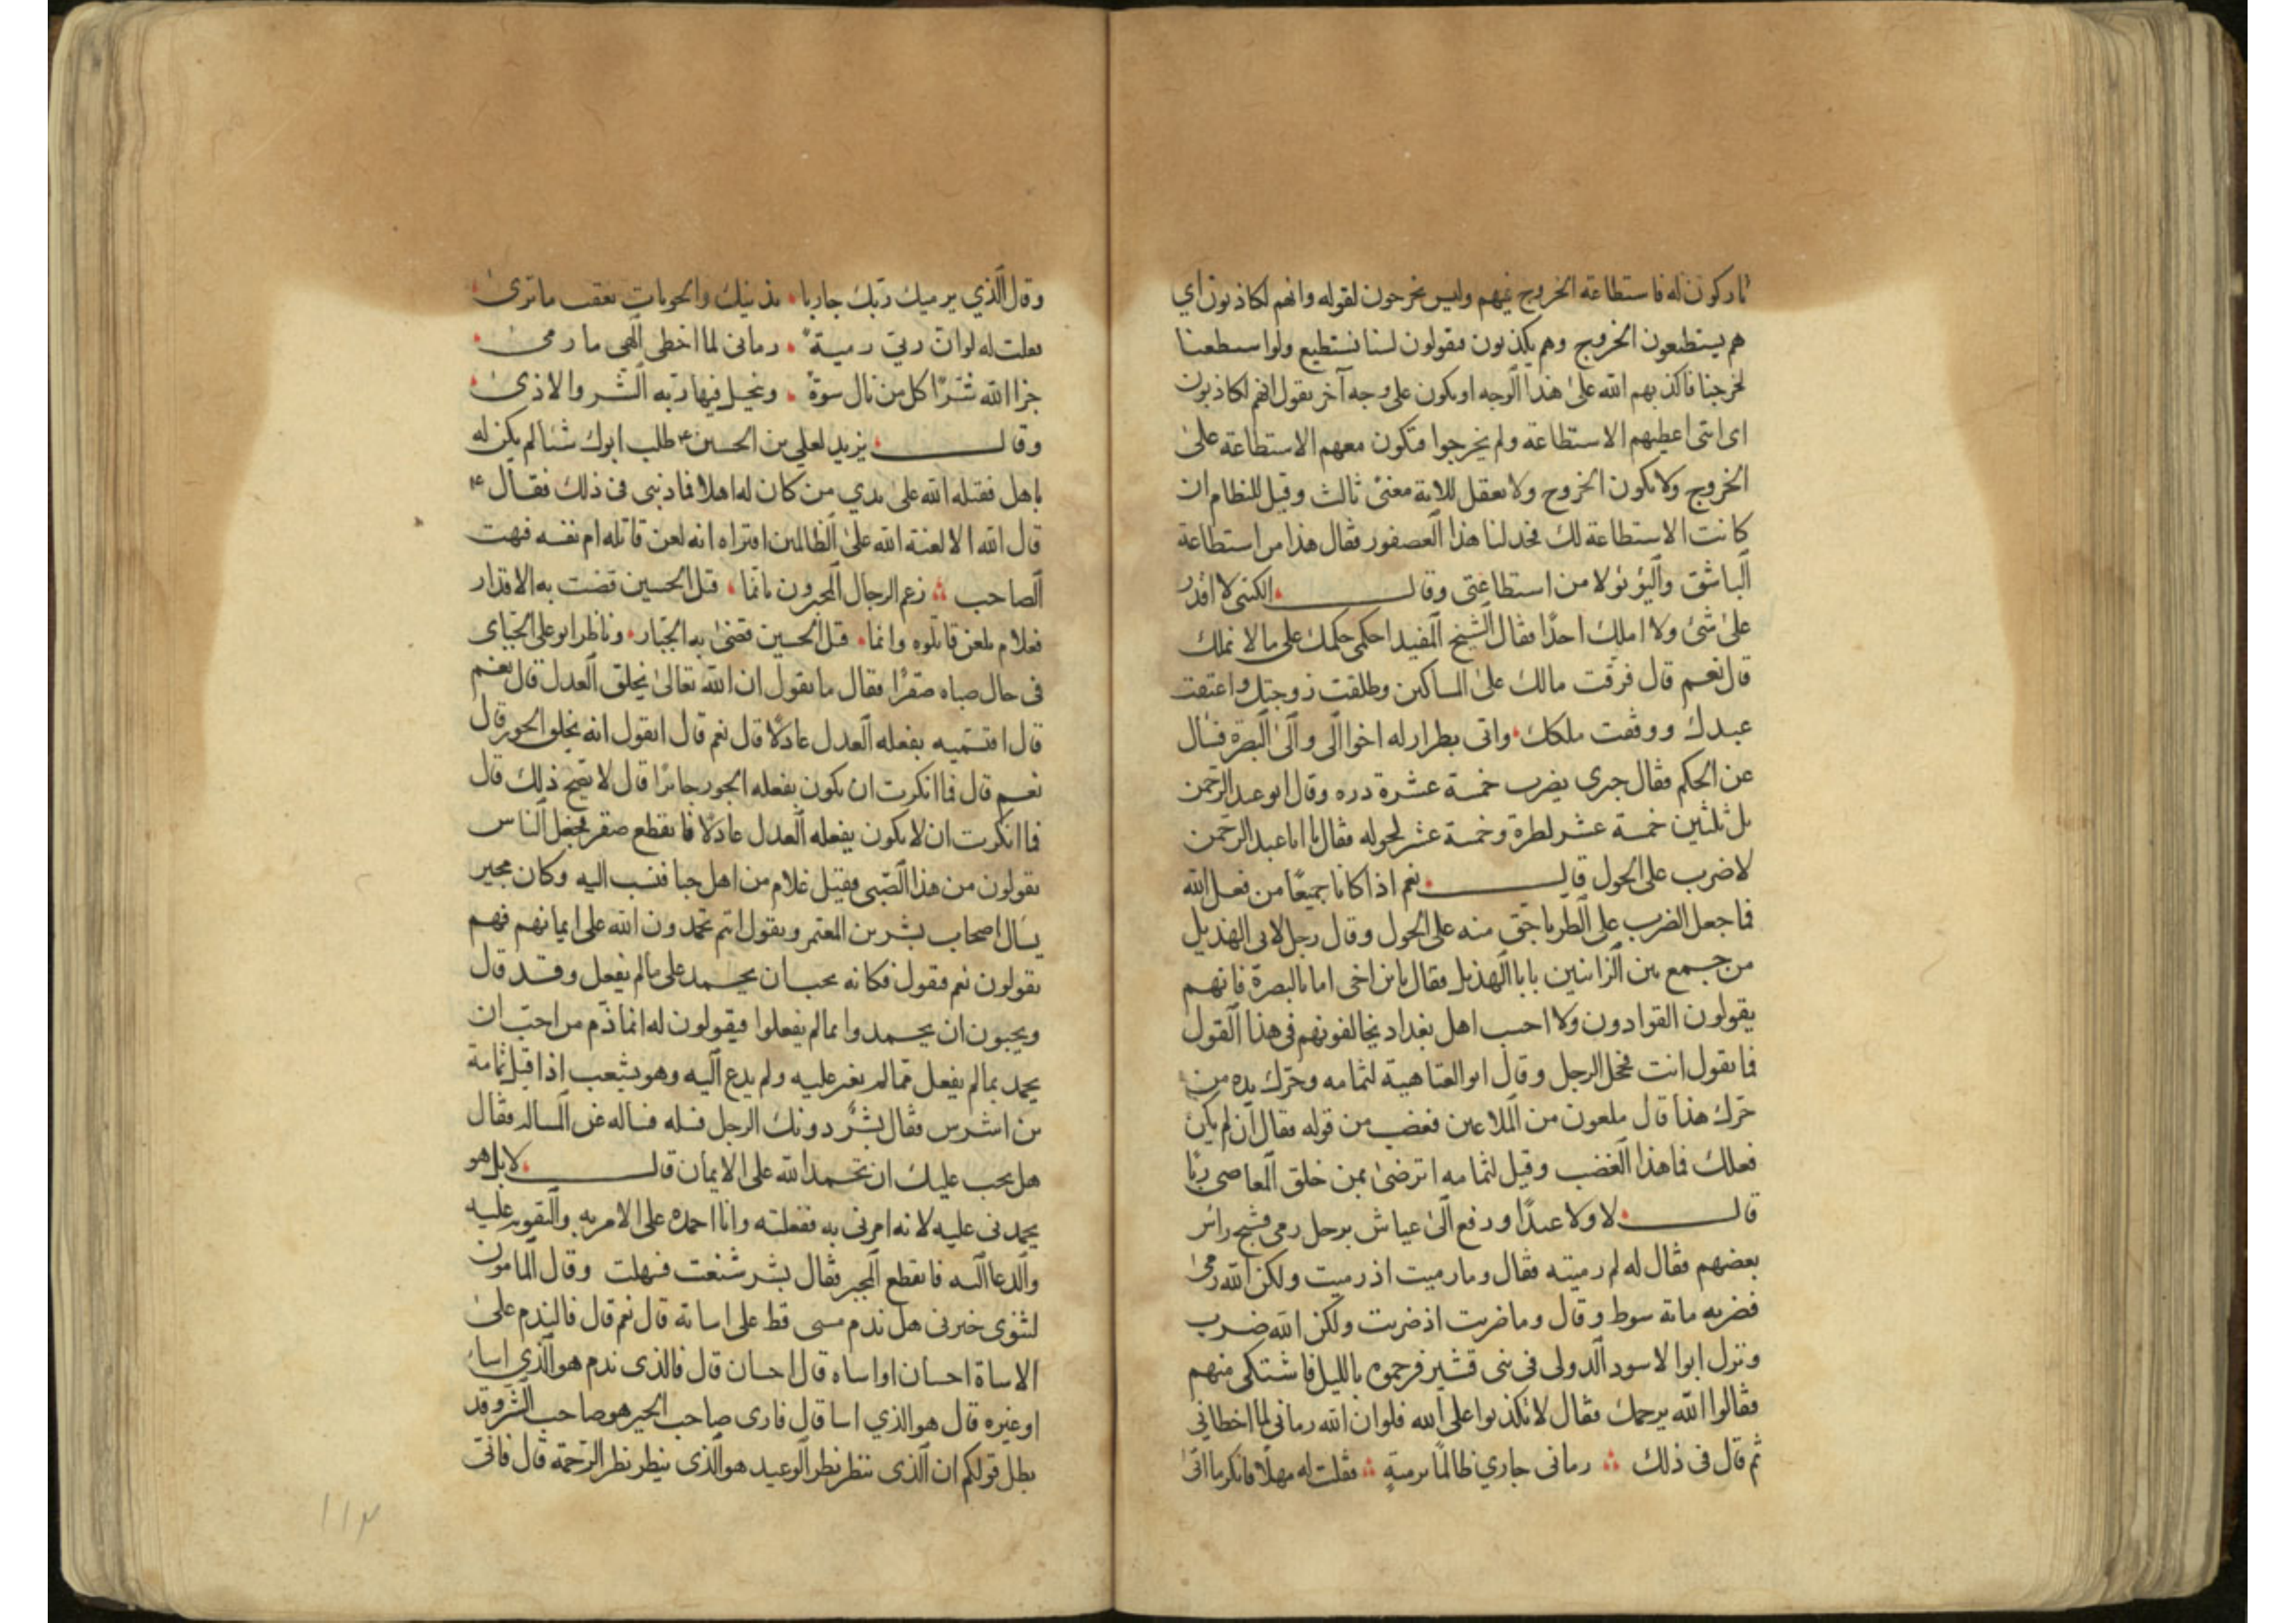 تاركون له فاستطاعة الخروج فيهم وليس يخرجون لقوله وانهم لكاذبون اي
هم يستطيعون الخروج وهم يكذبون فيقولون لسنا نستطيع ولو استطعنا
لخرجنا فاكذبهم الله على هذا الوجه او يكون على وجه آخر يقول انهم لكاذبون
اى انى اعطيهم الاستطاعة ولم يخرجوا فتكون معهم الاستطاعة على
الخروج ولا يكون الخروج ولا يعقل للاية معنى ثالث وقيل للنظام ان
كانت الاستطاعة لك فخد لنا هذا العصفور فقال هذا من استطاعة
الباشق واليؤيؤ لا من استطاعتى وقال الكتبى لا اقدر
على شئ ولا املك احدًا فقال الشيخ المفيد احكمى حكمك على ما لا نملك
قال نعم قال فرقت مالك على المساكين وطلقت زوجتك واعتقت
عبدك ووقفت ملكك واتى بطرار له احوال الى والى البصرة فسال
عن الحكم فقال جبرى يضرب خمسة عشرة دره وقال ابو عبد الرحمن
بل ثلثين خمسة عشر لطرة وخمسة عشر لحوله فقال يا ابا عبد الرحمن
لاضرب على الحول قال نعم اذا كانا جميعًا من فعل الله
فما جعل الضرب على الطر باحق منه على الحول وقال رجل لابى الهذيل
من جمع بين الزانيين يابا الهذيل فقال يابن اخى اما بالبصرة فانهم
يقولون القوادون ولا احسب اهل بغداد يخالفونهم فى هذا القول
فما تقول انت فخجل الرجل وقال ابو العتاهية لثمامه وحرك يده من
حرك هذا قال ملعون من الملاعين فغضب من قوله فقال ان لم يكن
فعلك فما هذا الغضب وقيل لثمامه اترضى بمن خلق المعاصى ربًا
قال لا ولا عبدًا ورفع الى عياش برجل رمى فشج راس
بعضهم فقال له لم رميته فقال وما رميت اذ رميت ولكن الله رمى
فضربه مائة سوط وقال وما ضربت اذ ضربت ولكن الله ضرب
ونزل ابوا لاسود الدولى فى بنى قشير فرجموه بالليل فاشتكى منهم
فقالوا الله يرجمك فقال لا تكذبوا على الله فلو ان الله رمانى لما اخطانى
ثم قال فى ذلك رمانى جاري ظالمًا برميةٍ فقلت له مهلًا فانكر ما اتى
وقال الذي يرميك ربك جاريا بذنبك والحوبات تعقب ما ترى
فقلت له لو ان ربى رمية رمانى لما اخطى الهى ما رمى
جزا الله شرًا كل من نال سوةً ونحل فيها ربه الشر والاذى
وقال يزيد لعلي بن الحسين ع طلب ابوك شيا لم يكن له
باهل فقتله الله على يدي من كان له اهلا فما ذنبى فى ذلك فقال ع
قال الله الا لعنة الله على الظالمين افتراه انه لعن قاتله ام نفسه فبهت
الصاحب زعم الرجال المجبرون بانما قتل الحسين قضت به الاقدار
فعلام يلعن قاتلوه وانما قتل الحسين قضى به الجبار وناظر ابو على الجبائى
فى حال صباه صقرًا فقال ما تقول ان الله تعالى يخلق العدل قال نعم
قال افتسميه بفعله العدل عادلًا قال نعم قال اتقول انه يخلق الجور قال
نعم قال فما انكرت ان يكون بفعله الجور جائرًا قال لا يصح ذلك قال
فما انكرت ان لا يكون بفعله العدل عادلًا فانقطع صقر فجعل الناس
يقولون من هذا الصبى فقيل غلام من اهل جبا فنسب اليه وكان مجبر
يسال اصحاب بشر بن المعتمر ويقول انتم تحمدون الله على ايمانهم فهم
يقولون نعم فيقول فكانه يحب ان يحمد على مالم يفعل وقد قال
ويحبون ان يحمدوا بما لم يفعلوا فيقولون له انما ذم من احب ان
يحمد بما لم يفعل ممالم يعن عليه ولم يدع اليه وهو يشعب اذا قبل ثمامة
بن اشرس فقال بشرٌ دونك الرجل فسله فساله عن المساله فقال
هل يجب عليك ان تحمد الله على الايمان قال لا بل هو
يحمدنى عليه لانه امرنى به ففعلته وانا احمده على الامر به والتقويه عليه
والدعا اليه فانقطع المجبر فقال بشر شنعت فسهلت وقال المامون
لثنوى خبرنى هل ندم مسى قط على اساته قال نعم قال فالندم على
الاساة احسان او اساه قال احسان قال فالذى ندم هو الذي اسا
او غيره قال هو الذي اسا قال فارى صاحب الخير هو صاحب الشر وقد
بطل قولكم ان الذى ينظر نظر الوعيد هو الذى ينظر نظر الرحمة قال فانى
١١٣